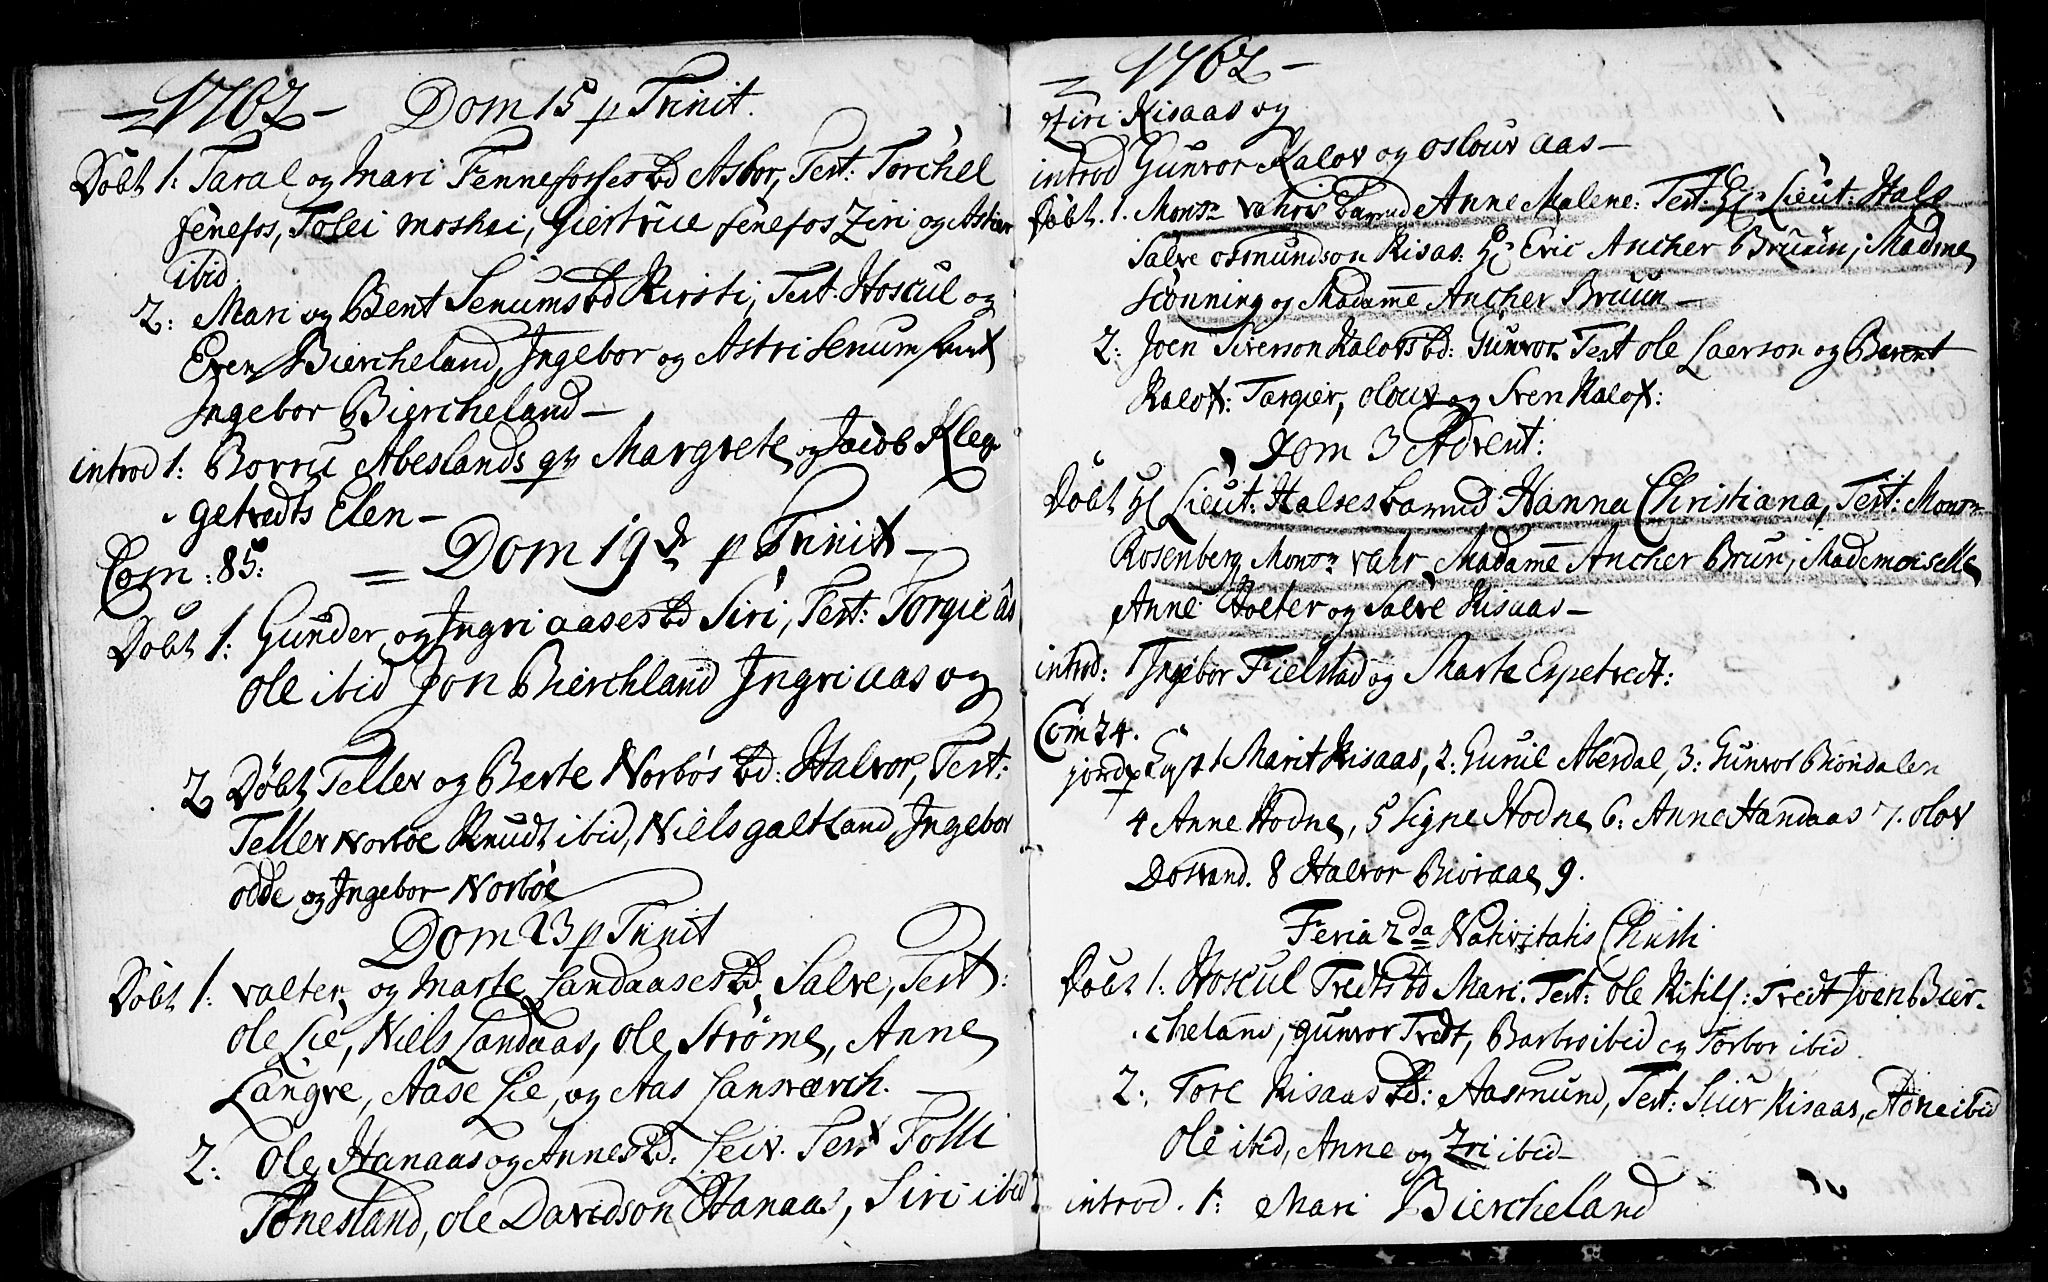 1762 Dom 15 p Trinit.
Døbt 1: Taral og Mari Fennefosses bd Asbor, Test: Torchel
fenefos, Tolei moskei, Giertrue fenefos Ziri og
ibid
2: Mari og Bent Senums bd Kirsti, Test. Hoscul og
Even Biercheland, Ingebor og Astri Senum samt
Ingebor Biercheland
introd 1: Borru Abeslands qv Margrete og Jacob Kleg
getvedts Elen
Com: 85: Dom 19 p Trinit
Døbt 1: Gunder og Ingri aases bd Siri, Test: Torgie ås
ole ibid Jon Bierchland Ingri aas og
2 Døbt Tellev og Berte Norbøs bd: Halvor, Test:
Tellev Norbøe Knudt ibid, Niels galtland, Ingebor
odde og Ingebor Norbøe
Dom 23 p Trinit
Døbt 1: valter og Marte Landaases bd. Salve, Test:
Ole Lie, Niels Landaas, ole Strøme, Anne
Langve, Aase Lie, og Aas Lansværch.
2: Ole Hanaas og Annes bd. Leiv. Test Tolli
Tønesland, ole Davidson Hanaas, Siri ibid
1762
Ziri Risaas og
introd Gunvor Kalov og oslouv aas
Døbt. 1. Monsr vahrs barn Anne Malene: Test: Hr Lieut: Hals
Salve osmundson Risas: Hr Eric Ancher Bruun, Madme
Schønning og Madame Ancher Bruun
2: Joen Siverson Kalovs bd: Gunvor Test ole Laerson og Berent
Kalov: Targier, olouv og Sven Kalov:
Dom 3 Advent:
Døbt Hr Lieut: Halses barn Hanna Christiana, Test: Monsr
Rosenberg, Monsr vahr, Madame Ancher Brun, Mademoiselle
Anne Holter og Salve Risaas
introd: 1 Ingebor Fielstad og Marte Espetvedt:
Com 24.
jordp 1 Marit Risaas, 2: Guruil Aberdal, 3: Gunvor Biøndalen
4 Anne Hodne, 5 Signe Hodne 6: Anne Handaas 7. olov
Dosvand. 8 Halvor Biøraae 9.
Feria 2da Nativitatis Christi
Døbt 1. Hoscul Tredts bd Mari. Test: ole Kitils: Tredt Joen Bier-
cheland, gunvor Tredt, Barbro ibid og Torbor ibid
2: Tore Risaas bd: Aasmund, Test: Siur Risaas, Aane ibid
Ole ibid, Anne og Zri ibid
introd. 1: Mari Biercheland